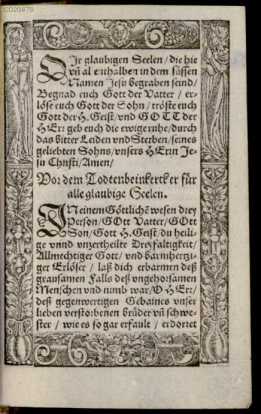 Ir glaubigen Seelen / die hie
vñ al enthalben in dem süssen
Namen Jesu begraben seind /
Begnad euch Gott der Vatter / er-
löse euch Gott der Sohn / tröste euch
Gott der H. Geist / vnd GOTT der
HErr geb euch die ewige ruhe / durch
das bitter Leiden vnd Sterben / seines
geliebten Sohns / vnsers HErrn Je-
su Christi / Amen /
Vor dem Todtenbeinkercker für
alle glaubige Seelen.
IN einem Göttlichē wesen drey
Person / GOtt Vatter / GOtt
Son / Gott H. Geist / du heili-
ge vnnd vnzertheilte Dreyfaltigkeit /
Allmechtiger Gott / vnd barmhertzi-
ger Erlöser / laß dich erbarmen deß
grausamen Falls deß vngehorsamen
Menschen vnd nimb war / O HErr /
deß gegenwertigen Gebaines vnser
lieben verstorbenen brüder vñ schwe-
ster / wie es so gar erfault / erdorret